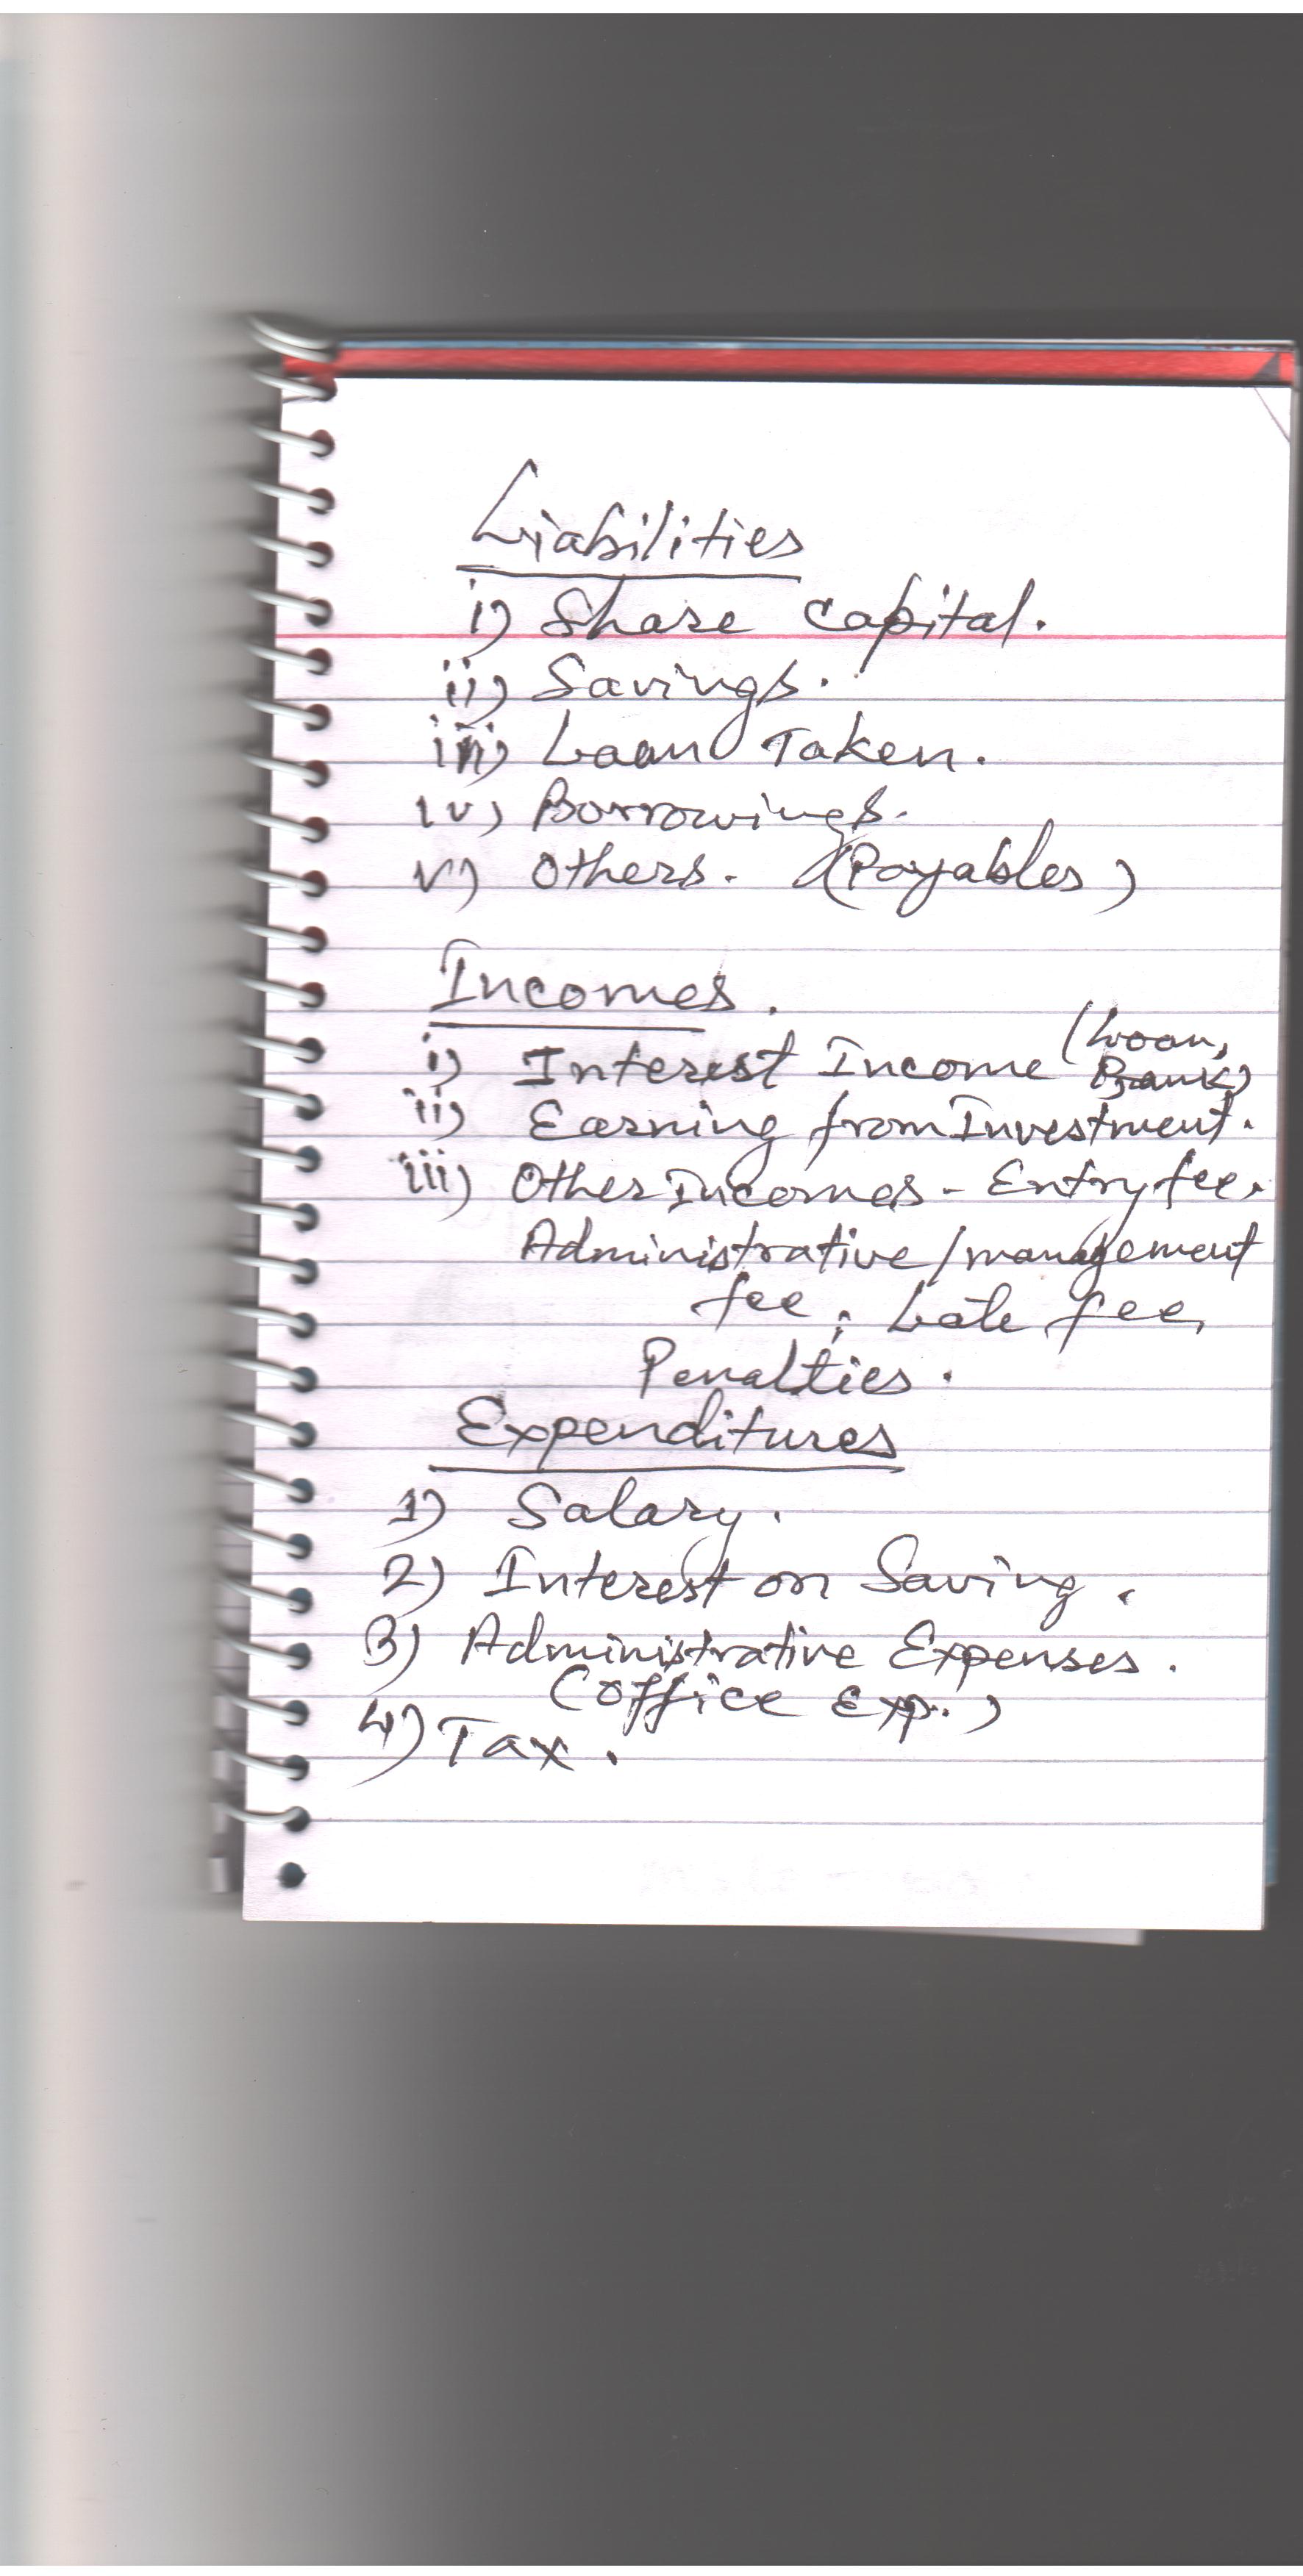 Liabilities
i) Share capital.
ii) Savings.
iii) Loan Taken.
iv) Borrowings.
v) Others. (Payables)
Incomes.
i) Interest Income (Loan, Bank)
ii) Earning from Investment.
iii) Other Incomes - Entry fee,
Administrative/management
fee, Late fee,
Penalties.
Expenditures
1) Salary.
2) Interest on Saving.
3) Administrative Expenses.
(office Exp.)
4) Tax.